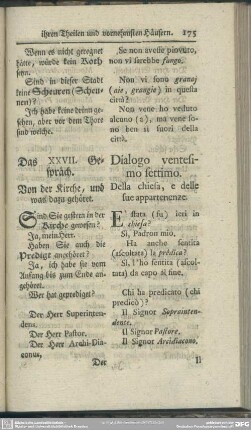 ihren Theilen und vornehmsten Häusern. 175
Wenn es nicht geregnet
hätte, würde kein Koth
seyn.
Sind in dieser Stadt
keine Scheuren (Scheu-
nen)?
Ich habe keine drinn ge-
sehen, aber vor dem Thore
sind welche.
Das XXVII. Ge-
spräch.
Von der Kirche, und
was dazu gehöret.
Sind Sie gestern in der
Kirche gewesen?
Ja, mein Herr.
Haben Sie auch die
Predigt angehöret?
Ja, ich habe sie vom
Anfang bis zum Ende an-
gehöret.
Wer hat geprediget?
Der Herr Superinten-
dens.
Der Herr Pastor.
Der Herr Archi-Dia-
conus,
Der
Se non avesse piovuto,
non vi sarebbe fango.
Non vi sono granaj
(aie, grangie) in questa
città?
Non vene ho veduto
alcuno (a), ma vene so-
no ben si fuori della
città.
Dialogo ventesi-
mo settimo.
Della chiesa, e delle
sue appartenenze.
E stata (fu) ieri in
chiesa?
Si, Padron mio.
Ha anche sentita
(ascoltata) la predica?
Si, l'ho sentita (ascol-
tata) da capo al fine.
Chi ha predicato (chi
predicò)?
Il Signor Soprinten-
dente.
Il Signor Pastore.
Il Signor Arcidiacono.
Il